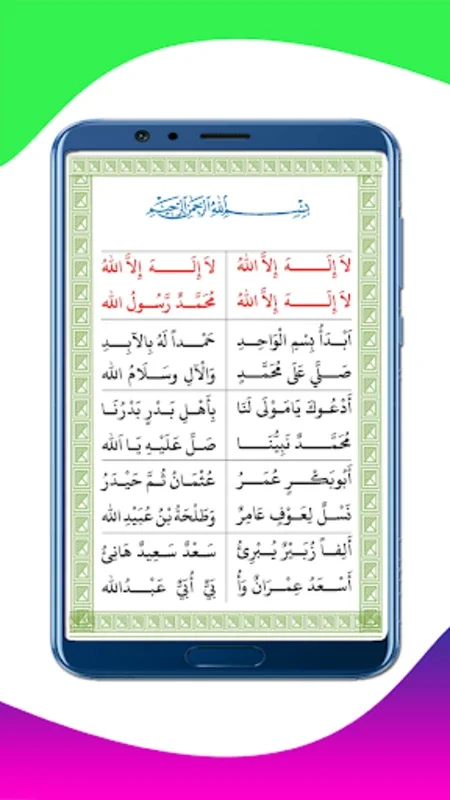 بِسْمِ اللهِ الرَّحْمٰنِ الرَّحِيْمِ
لاَ إِلَـــهَ إِلاَّ اللهُ لاَ إِلَـــهَ إِلاَّ اللهُ
لاَ إِلَـــهَ إِلاَّ اللهُ مُحَمَّدٌ رَّسُولُ الله
اَبْدَأُ بِسْمِ الْوَاحِدِ حَمْداً لَهُ بِالآبِدِ
صَلِّي عَلَى مُحَمَّدٍ وَالْآلِ وسَلَامُ الله
أَدْعُوكَ يَامَوْلَى لَنَا بِأَهْلِ بَدْرٍ بَدْرُنَا
مُحَمَّدٌ نَبِيُّنَا صَلَّ عَلَيْهِ يَا اَلله
أَبُوبَكْرٍ عُمَرُ عُثْمَانُ ثُمَّ حَيْدَرُ
نَسْلٌ لِعَوْفٍ عَامِرٌ وَطَلْحَةُ بْنُ عُبَيْدِ الله
أَلِفاً زُبَيْرٌ يُبْرِئُ سَعْدٌ سَعِيدٌ هَانِئُ
أَسْعَدُ عِمْرَانٌ وَأُ بَيٌّ أُبَيٌّ عَبْدُالله